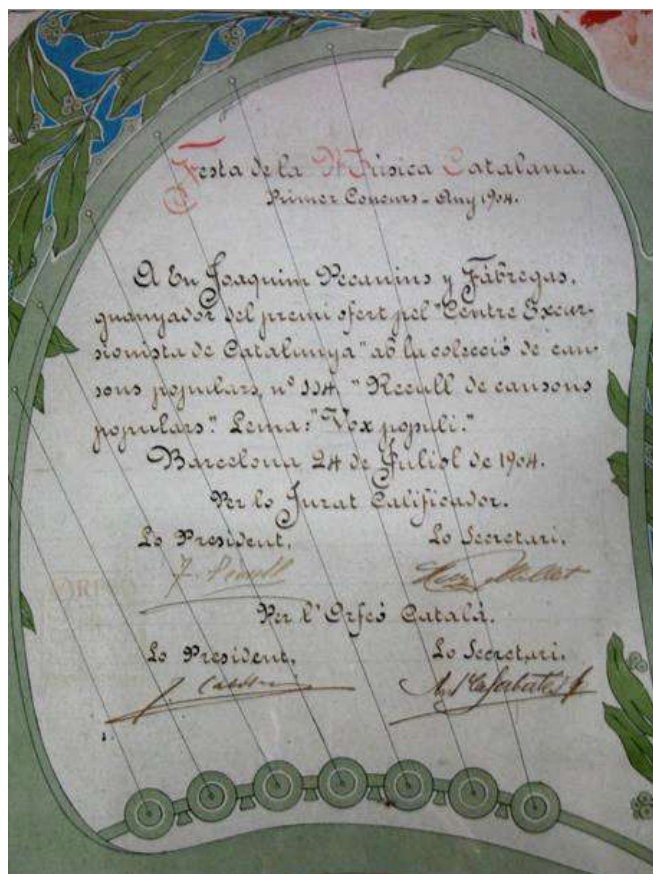 Festa de la Música Catalana.
Primer Concurs - Any 1904.
A En Joaquim Pecanins y Fábregas,
guanyador del premi ofert pel "Centre Excur-
sionista de Catalunya" ab la colecció de can-
sons populars, nº 114. "Recull de cansons
populars". Lema: "Vox populi."
Barcelona 24 de Juliol de 1904.
Per lo Jurat Calificador.
Lo President, Lo Secretari.
F. Pedrell Millet
Per l'Orfeó Catalá.
Lo President, Lo Secretari.
ORFEÓ